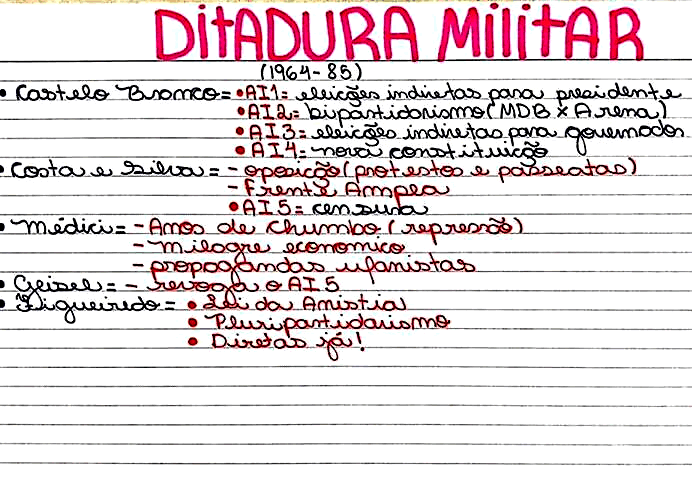 DITADURA MILITAR
(1964-85)
• Castelo Branco = • AI1 = eleições indiretas para presidente
• AI2 = bipartidarismo (MDB x Arena)
• AI3 = eleições indiretas para governador
• AI4 = nova constituição
• Costa e Silva = - oposição (protestos e passeatas)
- Frente Ampla
• AI5 = censura
• Médici = - Anos de chumbo (repressão)
- milagre economico
- propagandas ufanistas
• Geisel = - revoga o AI5
• Figueiredo = • Lei da Anistia
• Pluripartidarismo
• Diretas já!